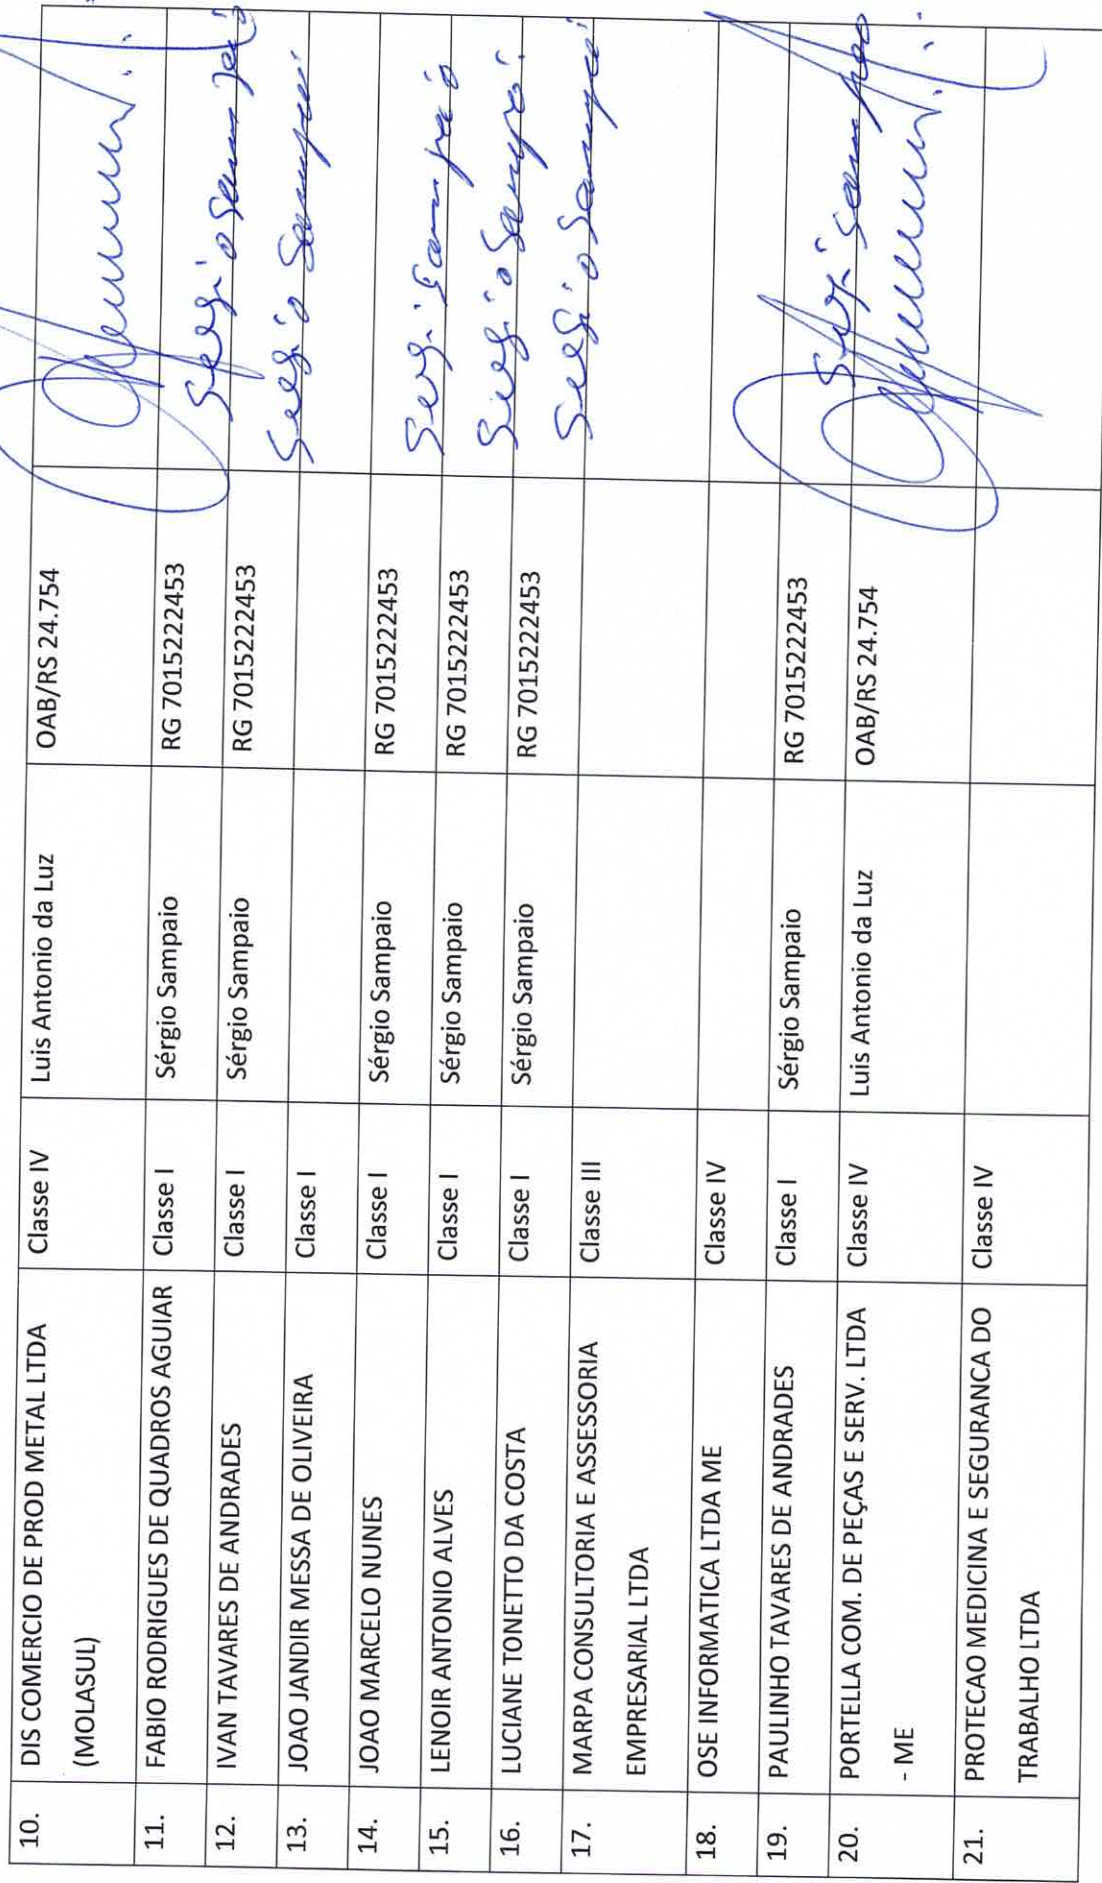 10. DIS COMERCIO DE PROD METAL LTDA Classe IV Luis Antonio da Luz OAB/RS 24.754
(MOLASUL)
11. FABIO RODRIGUES DE QUADROS AGUIAR Classe I Sérgio Sampaio RG 7015222453 Sergio Sampaio
12. IVAN TAVARES DE ANDRADES Classe I Sérgio Sampaio RG 7015222453 Sergio Sampaio
13. JOAO JANDIR MESSA DE OLIVEIRA Classe I
14. JOAO MARCELO NUNES Classe I Sérgio Sampaio RG 7015222453 Sergio Sampaio
15. LENOIR ANTONIO ALVES Classe I Sérgio Sampaio RG 7015222453 Sergio Sampaio
16. LUCIANE TONETTO DA COSTA Classe I Sérgio Sampaio RG 7015222453 Sergio Sampaio
17. MARPA CONSULTORIA E ASSESSORIA Classe III
EMPRESARIAL LTDA
18. OSE INFORMATICA LTDA ME Classe IV
19. PAULINHO TAVARES DE ANDRADES Classe I Sérgio Sampaio RG 7015222453 Sergio Sampaio
20. PORTELLA COM. DE PEÇAS E SERV. LTDA Classe IV Luis Antonio da Luz OAB/RS 24.754
- ME
21. PROTECAO MEDICINA E SEGURANCA DO Classe IV
TRABALHO LTDA